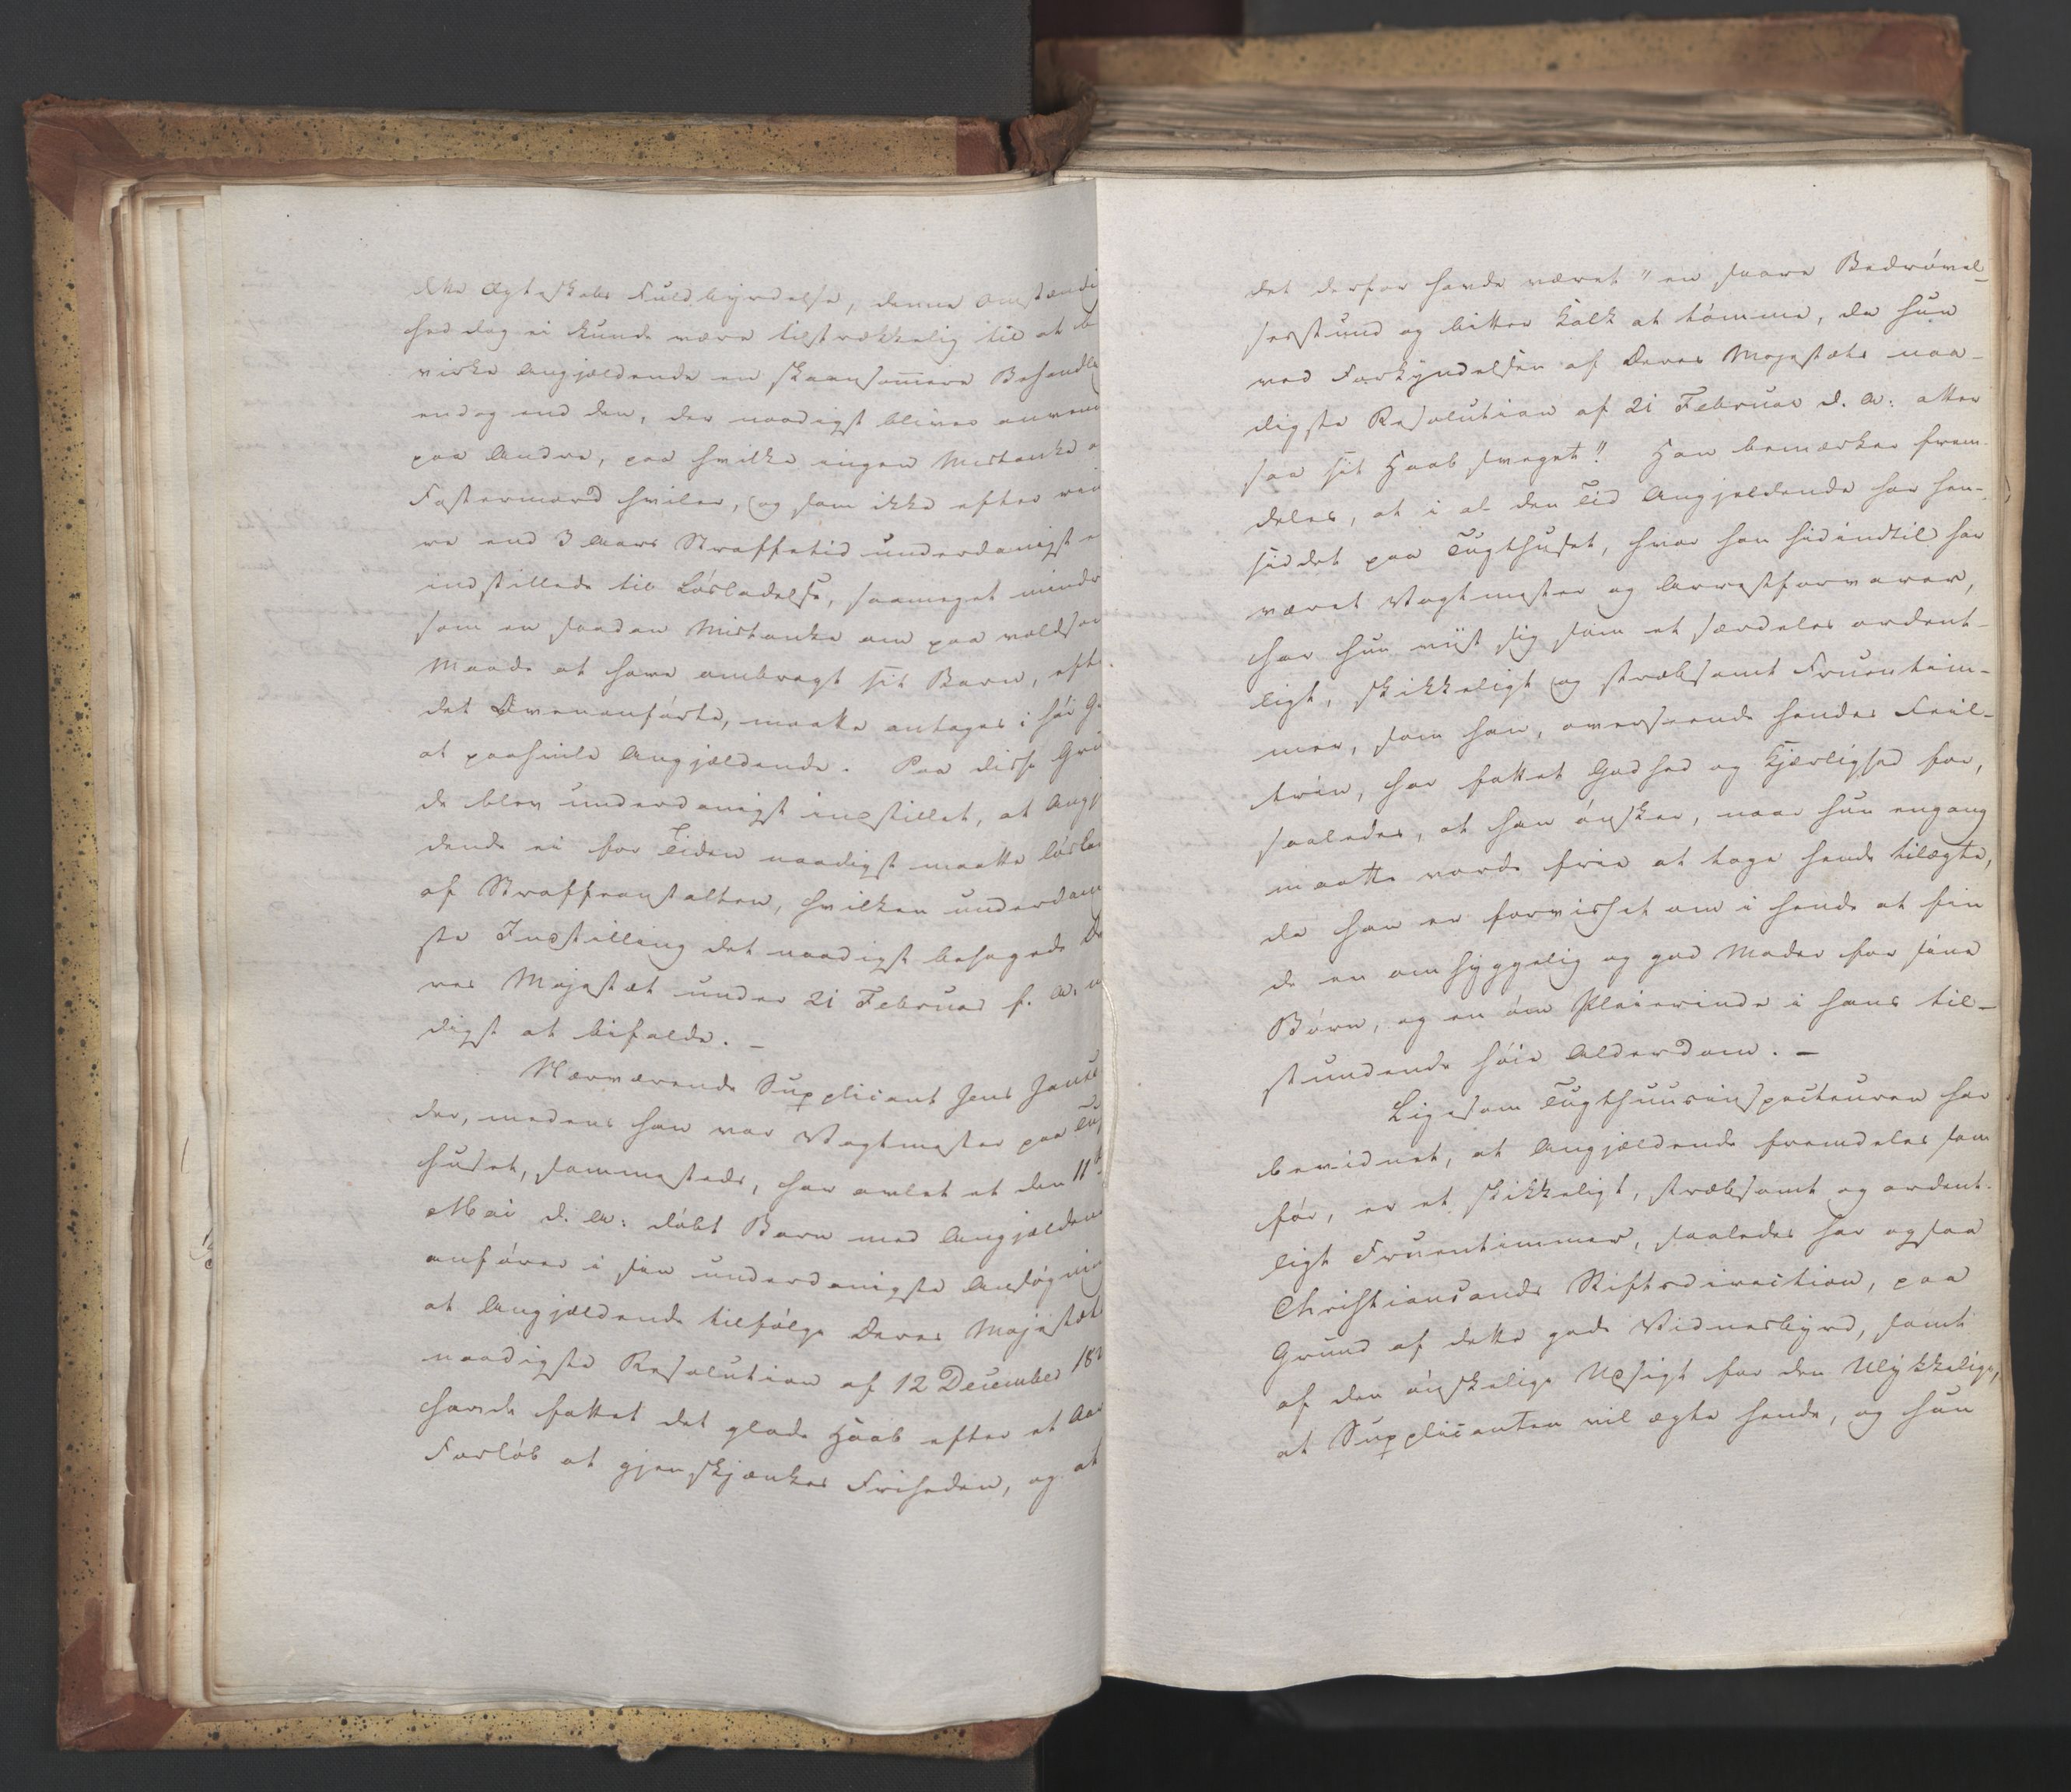 dette Ægteskabs Fuldbyrdelse, denne Omstændig
hed dog ei kunde være tilstrækkelig til at be
virke Angjældende en skaansommere Behandling
endog end den, der naadigst bliver anvendt
paa Andre, paa hvilke ingen Mistanke om
Fostermord hviler, og som ikke efter
re end 3 Aars Straffetid underdanigst
indstillede til Løsladelse, saameget mindre
som en saadan Mistanke om paa voldsom
Maade at have ombragt sit Barn, efter
det Ovenanførte, maatte antages i høi Grad
at paahvile Angjældende. Paa disse Grun
de blev underdanigst indstillet, at Angjæl
dende ei for Tiden naadigst maatte løslades
af Straffeanstalten, hvilken underdanig
ste Indstilling det naadigst behagede De
res Majestæt under 21 Februar f. A. naa
digst at bifalde. –
Nærværende Supplicant Jens
der, medens han var Vagtmester paa Tugt
huset, sammesteds, har avlet et den 11te
Mai d. A: døbt Barn med Angjældende
anfører i sin underdanigste Ansøgning
at Angjældende tilfølge Deres Majestæts
naadigste Resolution af 12 December 18
havde fattet det glade Haab efter et Aars
Forløb at gjenskjænkes Friheden, og at
det derfor havde været "en saare Bedrøvel-
sesstund og bitter Kalk at tømme, da hun
ved Forkyndelsen af Deres Majestæts naa-
digste Resolution af 21 Februar d. A: atter
saa sit Haab sveget". Han bemærker frem-
deles, at i al den Tid Angjeldende har hen-
siddet paa Tugthuset, hvor han hidindtil har
været Vagtmester og Arrestforvarer,
har hun viist sig som et særdeles ordent-
ligt, skikkeligt og stræbsomt Fruentim-
mer, som han, overseende hendes Feil-
trin, har fattet Godhed og Kjærlighed for,
saaledes, at han ønsker, naar hun engang
maatte vorde frie at tage hende tilægte,
da han er forvisset om i hende at fin
de en omhyggelig og god Moder for sine
Børn, og en øm Pleierinde i hans til-
stundende høie Alderdom. –
Ligesom Tugthuusinspecteuren har
bevidnet, at Angjældende fremdeles som
før, er et skikkeligt, stræbsomt og ordent-
ligt Fruentimmer, saaledes har ogsaa
Christiansands Stiftsdirection, paa
Grund af dette gode Vidnesbyrd, samt
af den ønskelige Udsigt for den Ulykkelige,
at Supplicanten vil ægte hende, og hun